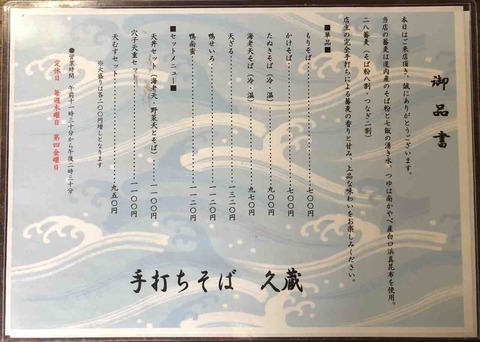 御品書
本日はご来店頂き、誠にありがとうございます。
当店の蕎麦は道内産のそば粉と七飯の湧き水、つゆは南かやべ産白口浜真昆布を使用。
二八蕎麦（そば粉八割・つなぎ二割）
店主の完全手打ちによる蕎麦の香りと甘み、上品な味わいをお楽しみください。
■単品■
もりそば・・・・・・・七〇〇円
かけそば・・・・・・・七〇〇円
たぬきそば（冷・温）・・・七五〇円
海老天そば（冷・温）・・・九七〇円
天ざる・・・・・・・一三二〇円
鴨せいろ・・・・・・・一一二〇円
鴨南蛮・・・・・・・一一二〇円
■セットメニュー■
天丼セット（海老天・野菜天とそば）・・・一一〇〇円
穴子天重セット・・・・・・・一一〇〇円
天むすセット・・・・・・・九五〇円
※大盛りは各二〇〇円増しとなります
●営業時間 午前十一時三十分から午後二時三十分
定休日 毎週木曜日 第四金曜日
手打ちそば 久蔵